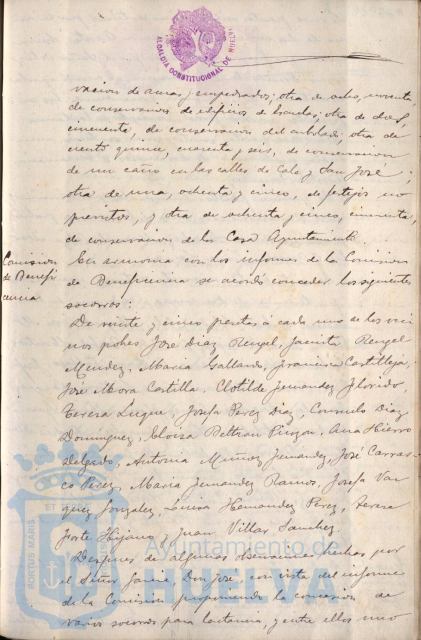 ALCALDIA CONSTITUCIONAL DE HUELVA
vacion de aceras y empedrados; otra de ocho, noventa,
de conservacion de edificios de Escuelas; otra de doce,
cincuenta, de conservacion del arbolado; otra de
ciento quince, cuarenta y seis, de conservacion
de un caño en las calles de Cala y San José;
otra de una, ochenta y cinco, de festejos no
previstos; y otra de ochenta y cinco, cincuenta,
de conservacion de la Casa Ayuntamiento.
Comision
de Benefi
cencia
En armonia con los informes de la Comision
de Beneficencia se acordó conceder los siguientes
socorros:
De veinte y cinco pesetas á cada uno de los veci
nos pobres José Diaz Rengel, Jacinta Rengel
Mendez, Maria Gallardo, Francisca Castilleja,
José Mora Castilla, Clotilde Fernandez Florido
Teresa Luque, Josefa Perez Diaz, Consuelo Diaz
Dominguez, Eloisa Beltran Pinzon, Ana Hierro
Delgado, Antonia Muñoz Fernandez, José Carras
co Perez, Maria Fernandez Ramos, Josefa Vaz
quez Gonzalez, Luisa Hernandez Perez, Teresa
Forte Hijano y Juan Villar Sanchez.
Despues de algunas observaciones hechas por
el Señor Garcia, Don José, con vista del informe
de la Comision proponiendo la concesion de
varios socorros para lactancia, y entre ellos uno
PORTUS MARIS ET
Ayuntamiento de
HUELVA